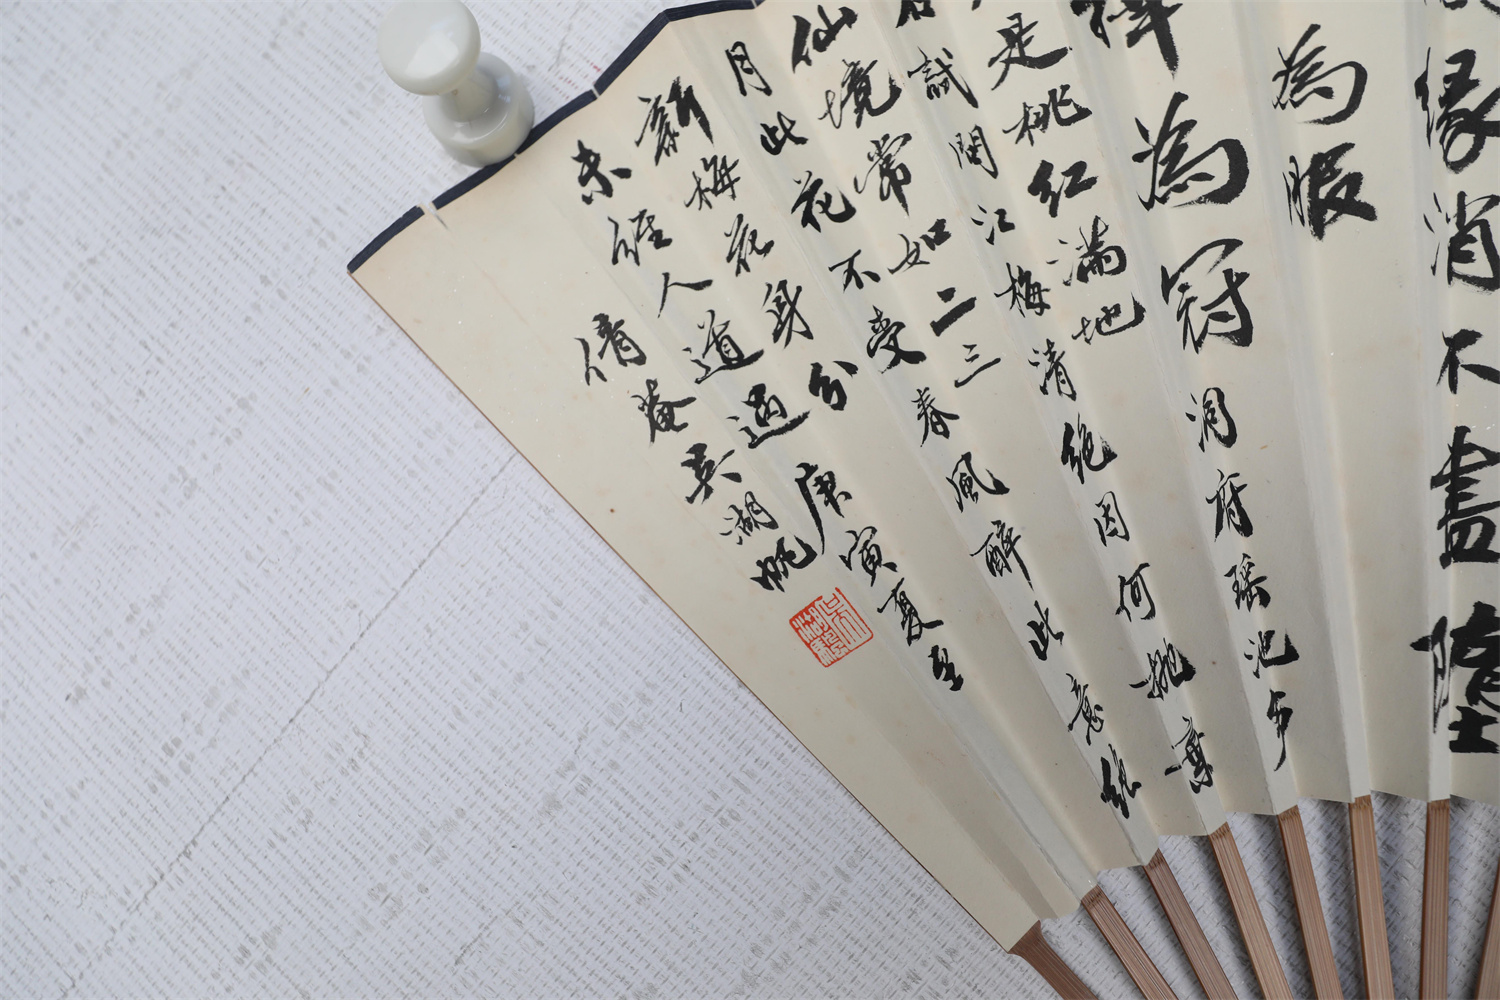 緣消不盡墮
為服
為冠洞府瑤池步
是桃紅滿地
試問江梅清絕因何拋棄
仙境常如二三
月此花不受春風醉此意絕
新梅花身分
未經人道過
庚寅夏至
倩庵吳湖帆
吳湖颿